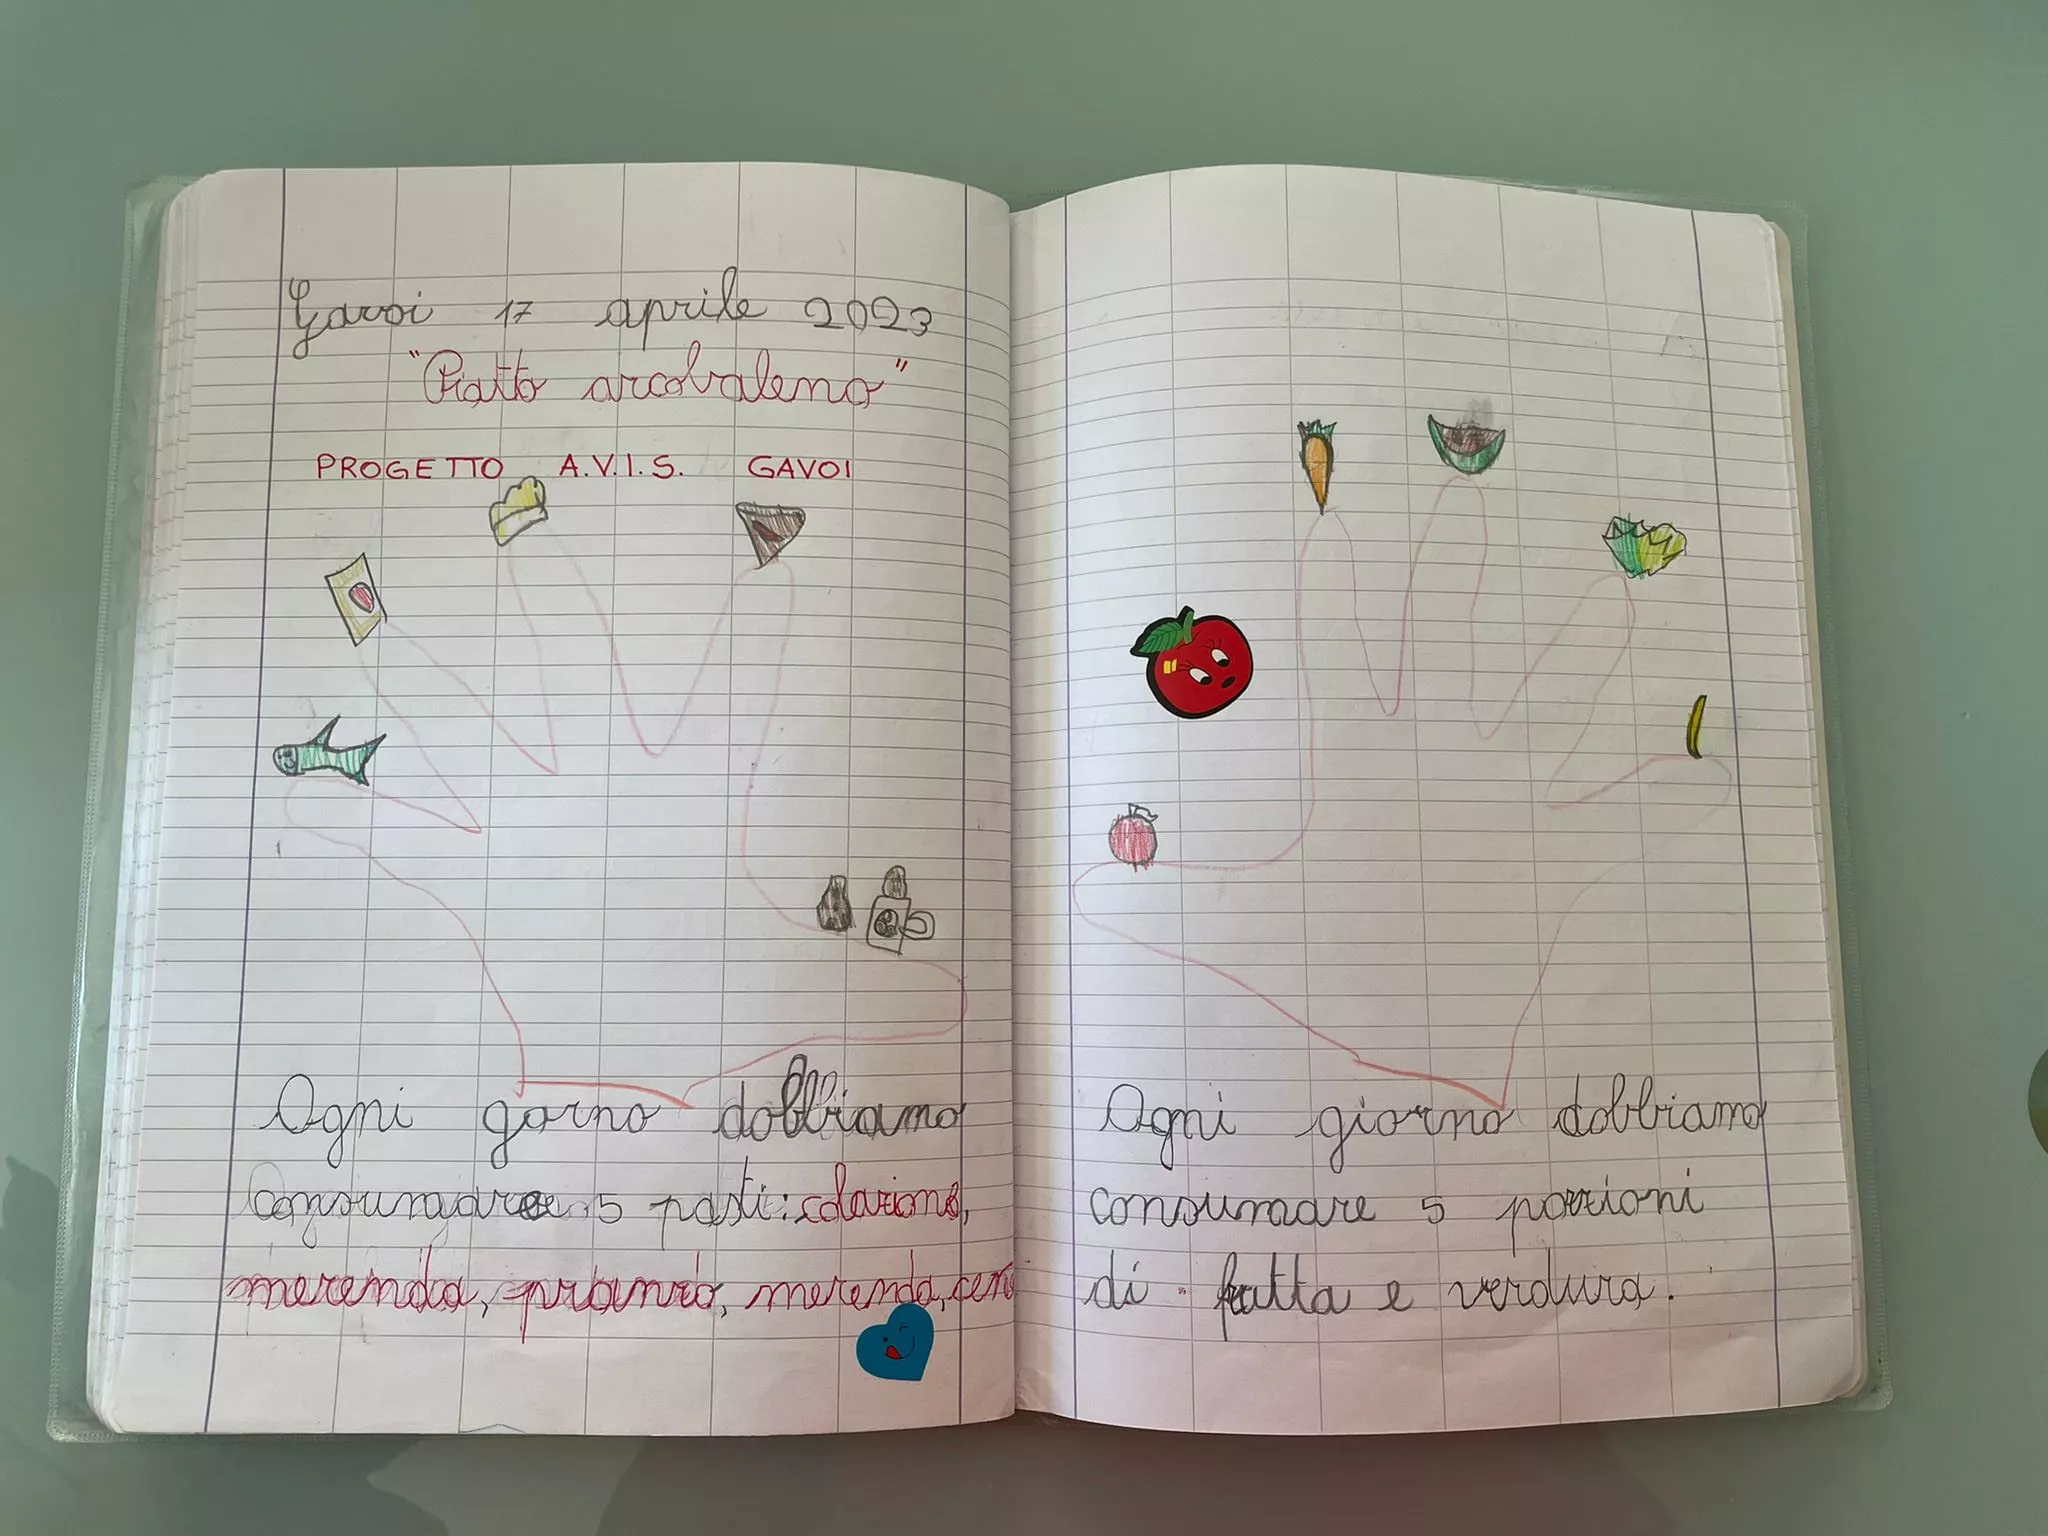 Gavoi 17 aprile 2023
"Piatto arcobaleno"
PROGETTO A.V.I.S. GAVOI
Ogni gorno dobbiamo
consumare 5 pasti: colazione,
merenda, pranzo, merenda, cena
Ogni giorno dobbiamo
consumare 5 porzioni
di frutta e verdura.